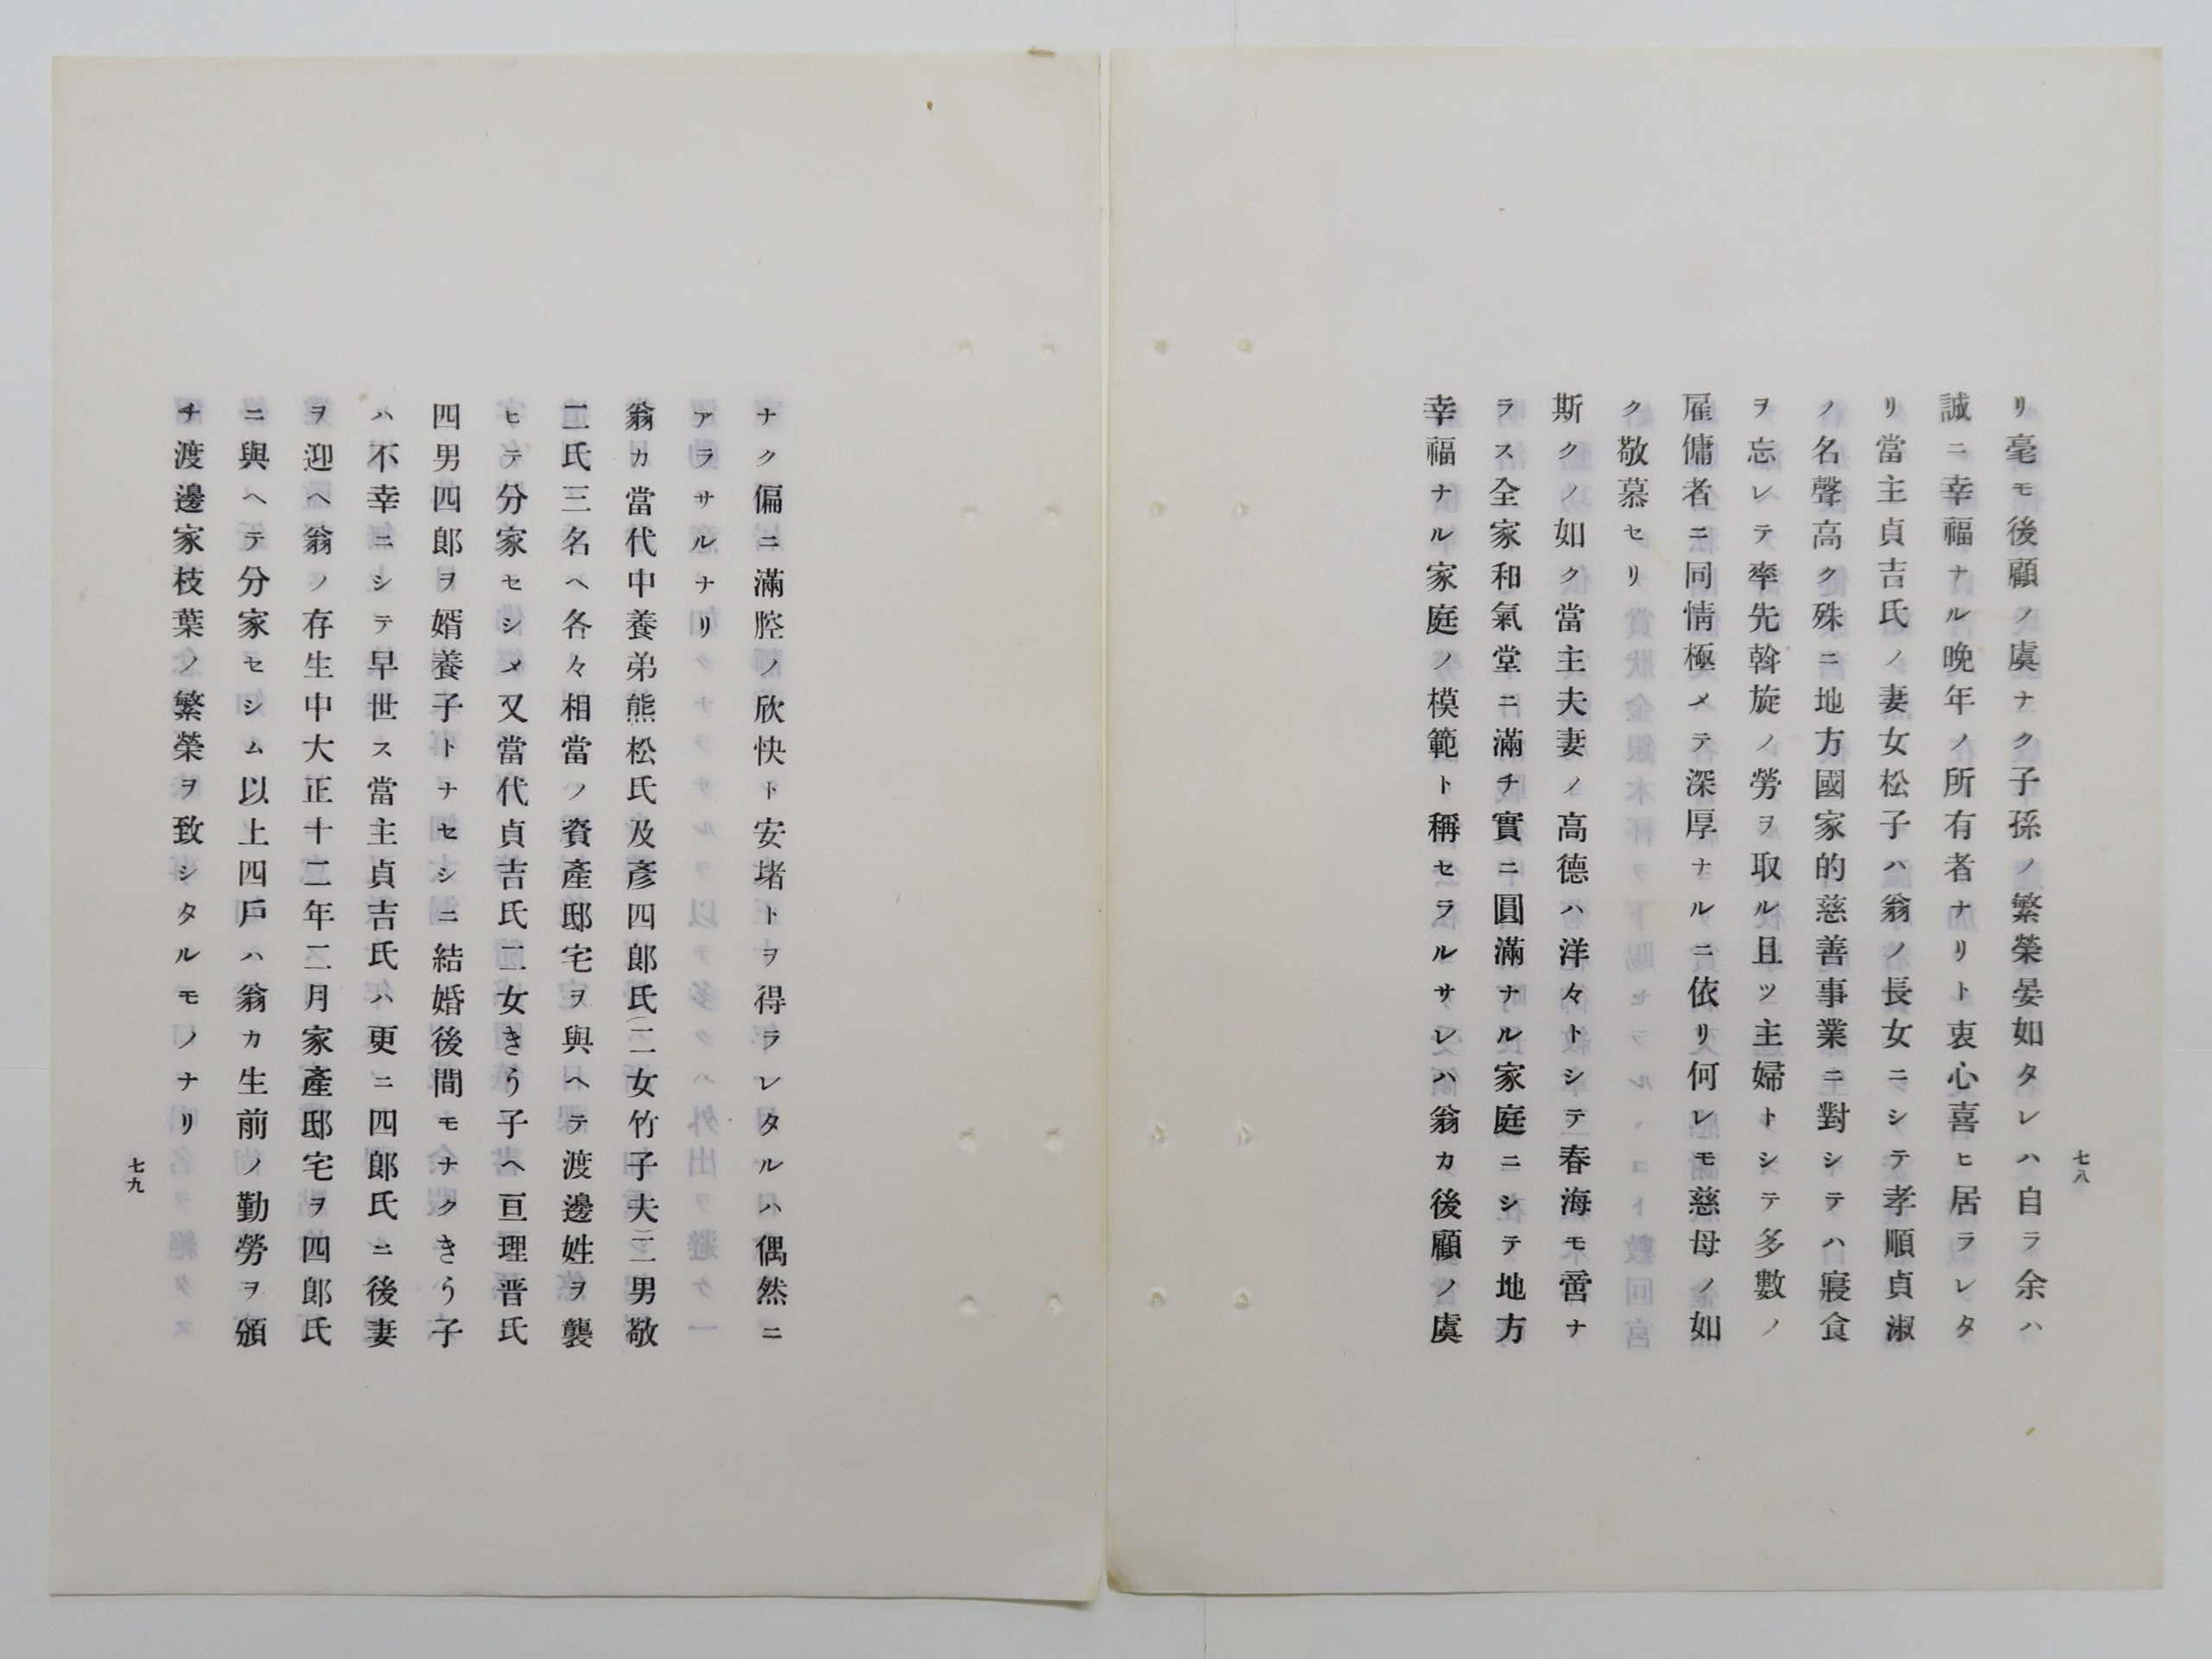 七八
リ毫モ後顧ノ虞ナク子孫ノ繁榮晏如タレハ自ラ余ハ
誠ニ幸福ナル晩年ノ所有者ナリト衷心喜ヒ居ラレタ
リ當主貞吉氏ノ妻女松子ハ翁ノ長女ニシテ孝順貞淑
ノ名聲高ク殊ニ地方國家的慈善事業ニ對シテハ寢食
ヲ忘レテ率先斡旋ノ勞ヲ取ル且ツ主婦トシテ多數ノ
雇傭者ニ同情極メテ深厚ナルニ依リ何レモ慈母ノ如
ク敬慕セリ
斯クノ如ク當主夫妻ノ高德ハ洋々トシテ春海モ啻ナ
ラス全家和氣堂ニ滿チ實ニ圓滿ナル家庭ニシテ地方
幸福ナル家庭ノ模範ト稱セラルサレハ翁カ後顧ノ虞
ナク偏ニ滿腔ノ欣快ト安堵トヲ得ラレタルハ偶然ニ
アラサルナリ
翁カ當代中養弟熊松氏及彥四郞氏(二女竹子夫)二男敬
二氏三名ヘ各々相當ノ資產邸宅ヲ與ヘテ渡邊姓ヲ襲
ヒテ分家セシメ又當代貞吉氏二女きう子ヘ亘理晋氏
四男四郞ヲ婿養子トナセシニ結婚後間モナクきう子
ハ不幸ニシテ早世ス當主貞吉氏ハ更ニ四郞氏ニ後妻
ヲ迎ヘ翁ノ存生中大正十二年二月家產邸宅ヲ四郞氏
ニ與ヘテ分家セシム以上四戶ハ翁カ生前ノ勤勞ヲ頒
チ渡邊家枝葉ノ繁榮ヲ致シタルモノナリ
七九